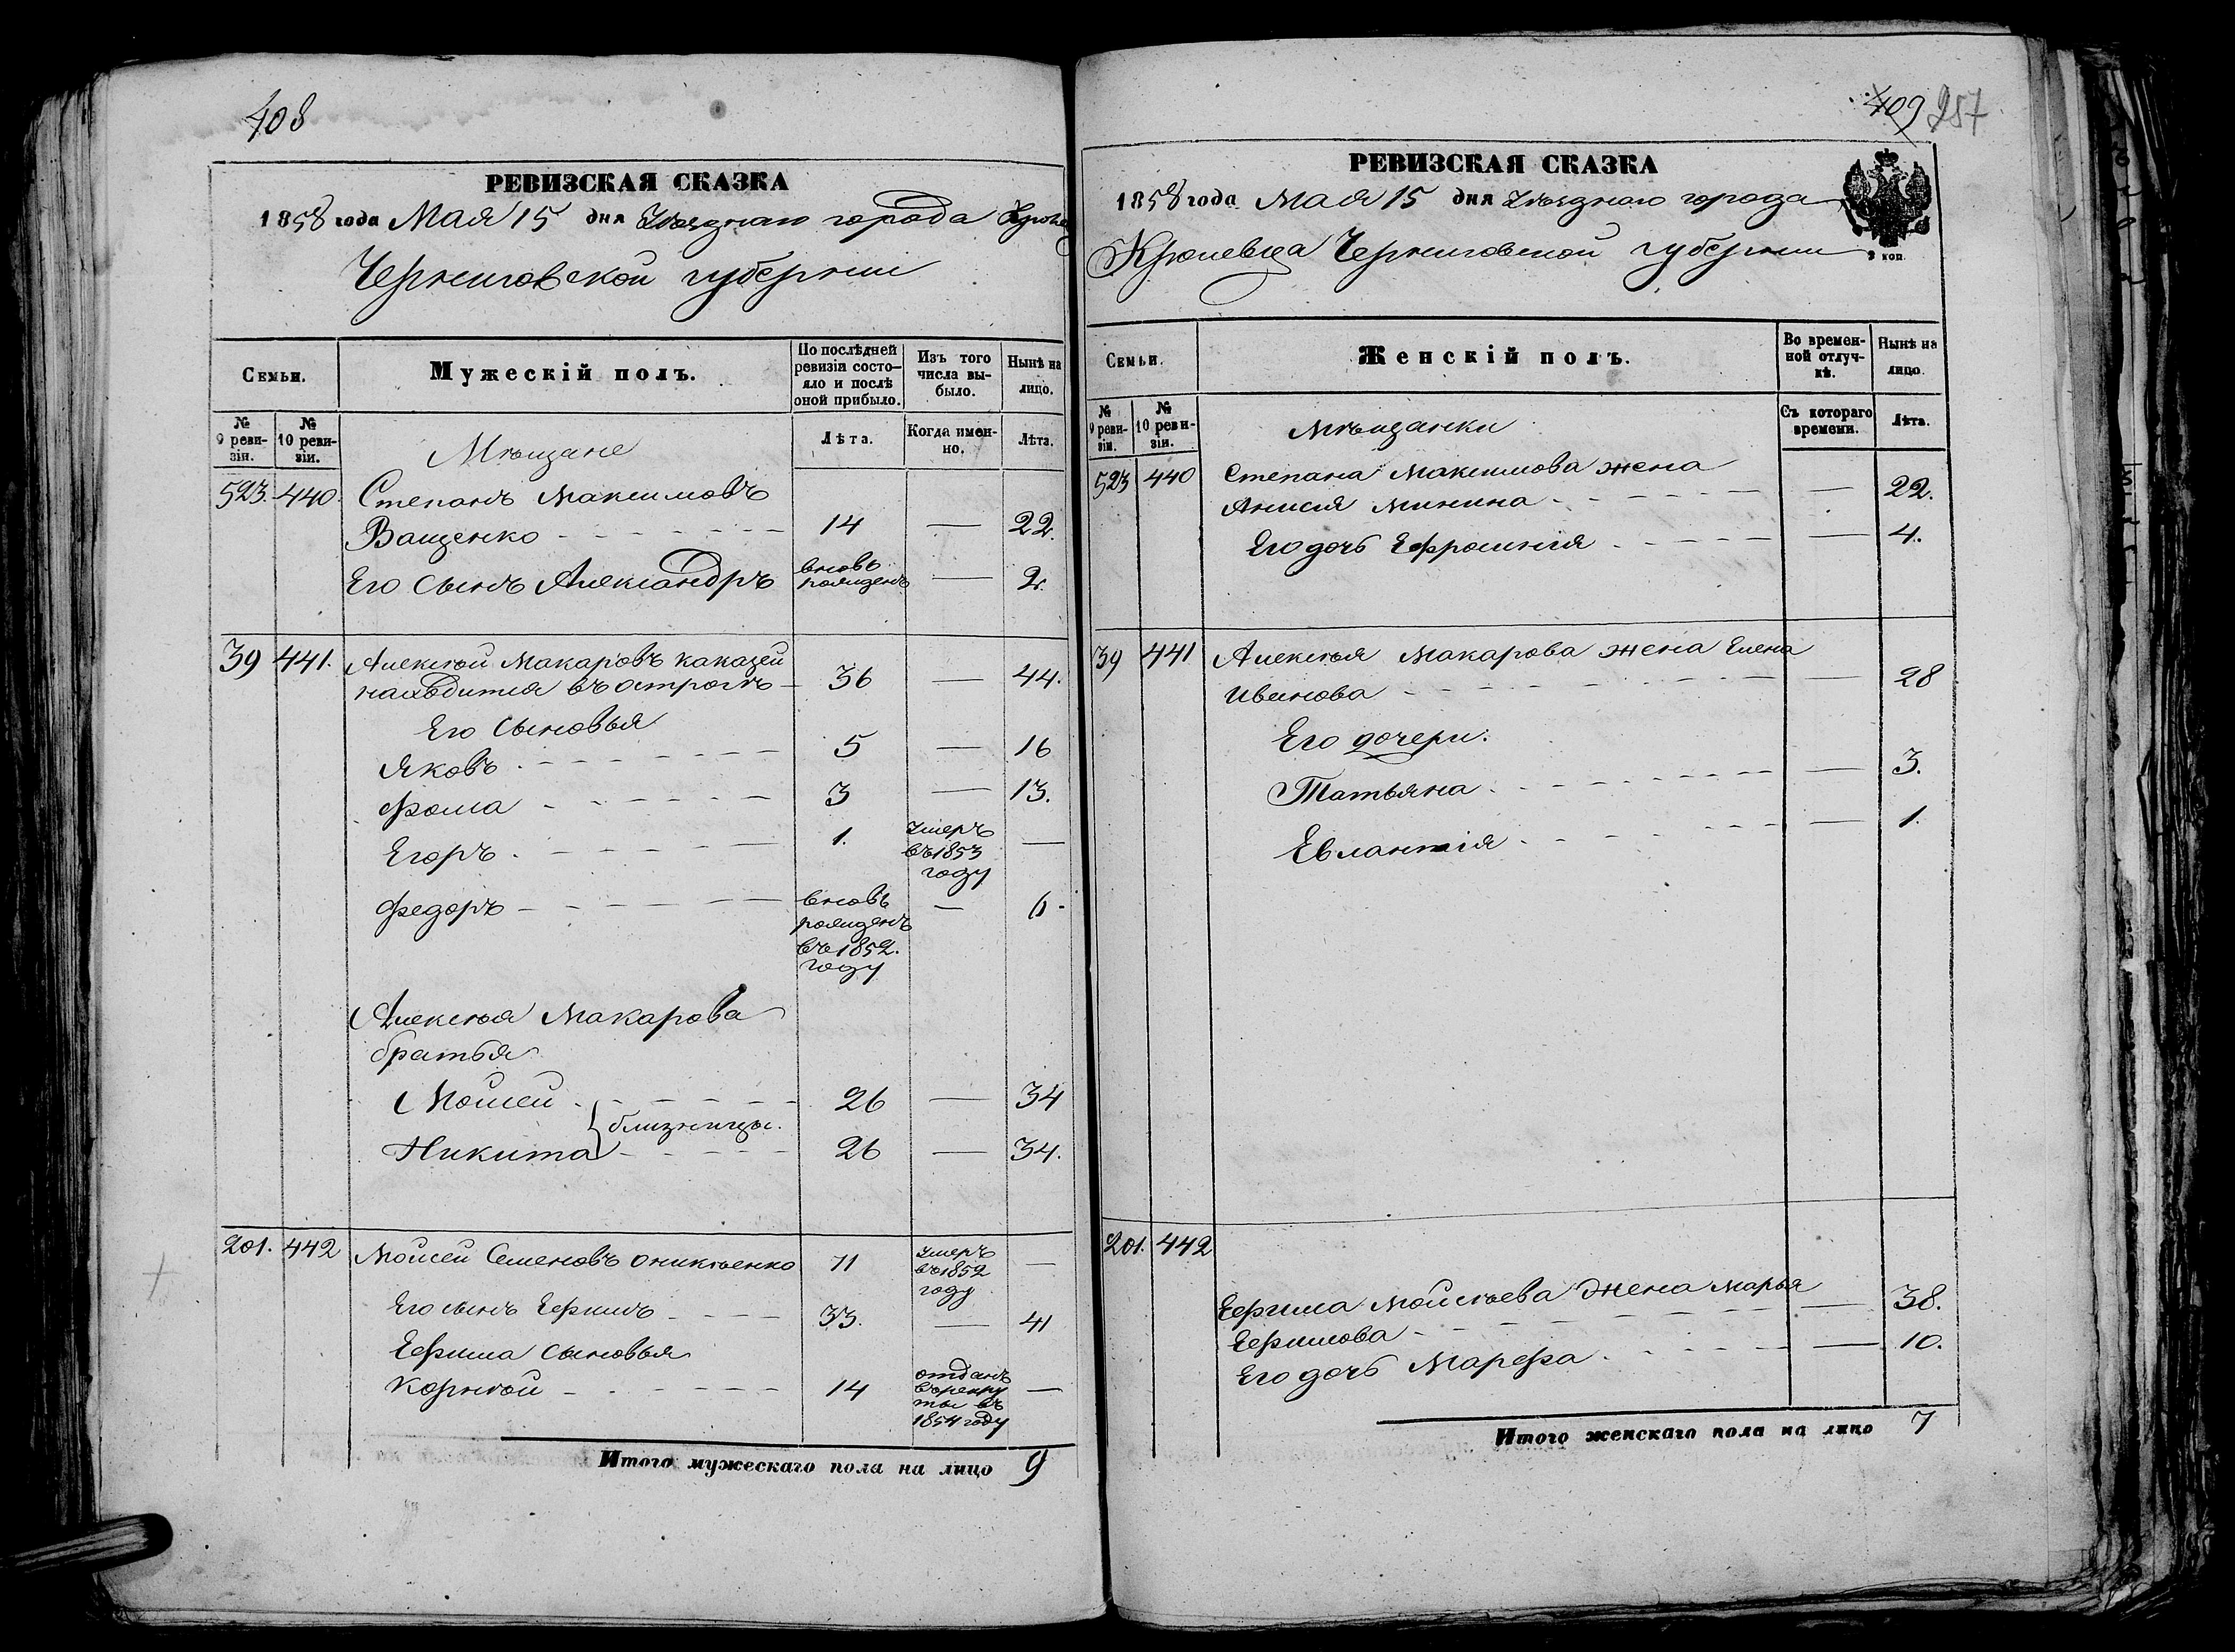 408
РЕВИЗСКАЯ СКАЗКА
1858 года Мая 15 дня Уѣзднаго города
Черниговской губерніи
Семьи.
Мужескій полъ.
По послѣдней ревизіи состояло и послѣ оной прибыло.
Изъ того числа выбыло.
Нынѣ на лицо.
№ 9 ревизіи.
№ 10 ревизіи.
Мѣщане
Лѣта.
Когда именно.
Лѣта.
523. 440. Степанъ Максимовъ
Ващенко 14 — 22.
Его сынъ Александръ вновь рожденъ — 2.
39 441. Алексѣй Макаровъ
находится въ острогѣ — 36 — 44.
Его сыновья
Яковъ 5 — 16
Фома 3 — 13.
Егоръ 1. умеръ въ 1853 году —
Федоръ вновь рожденъ въ 1852. году — 6
Алексѣя Макарова
братья
Мойсей 26 — 34
близнецы.
Никита 26 — 34.
201. 442 Мойсей Семеновъ Оникѣенко 71 умеръ въ 1852 году —
Его сынъ Ефимъ 33. — 41
Ефима сыновья
Корнѣй 14 отданъ въ рекруты въ 1854 году —
Итого мужескаго пола на лицо 9
409 257
РЕВИЗСКАЯ СКАЗКА
1858 года Мая 15 дня Уѣзднаго города
Кролевца Черниговской губерніи
Семьи.
Женскій полъ.
Во временной отлучкѣ.
Нынѣ на лицо.
№ 9 ревизіи.
№ 10 ревизіи.
Мѣщанки
Съ котораго времени.
Лѣта.
523 440 Степана Максимова жена
Анисія Минина — 22.
Его дочь Ефросинія — 4.
39 441 Алексѣя Макарова жена Елена
Иванова — 28
Его дочери:
Татьяна — 3.
Евлампія — 1.
201. 442
Ефима Мойсѣева жена Марья
Ефимова — 38.
Его дочь Марфа — 10.
Итого женскаго пола на лицо 7